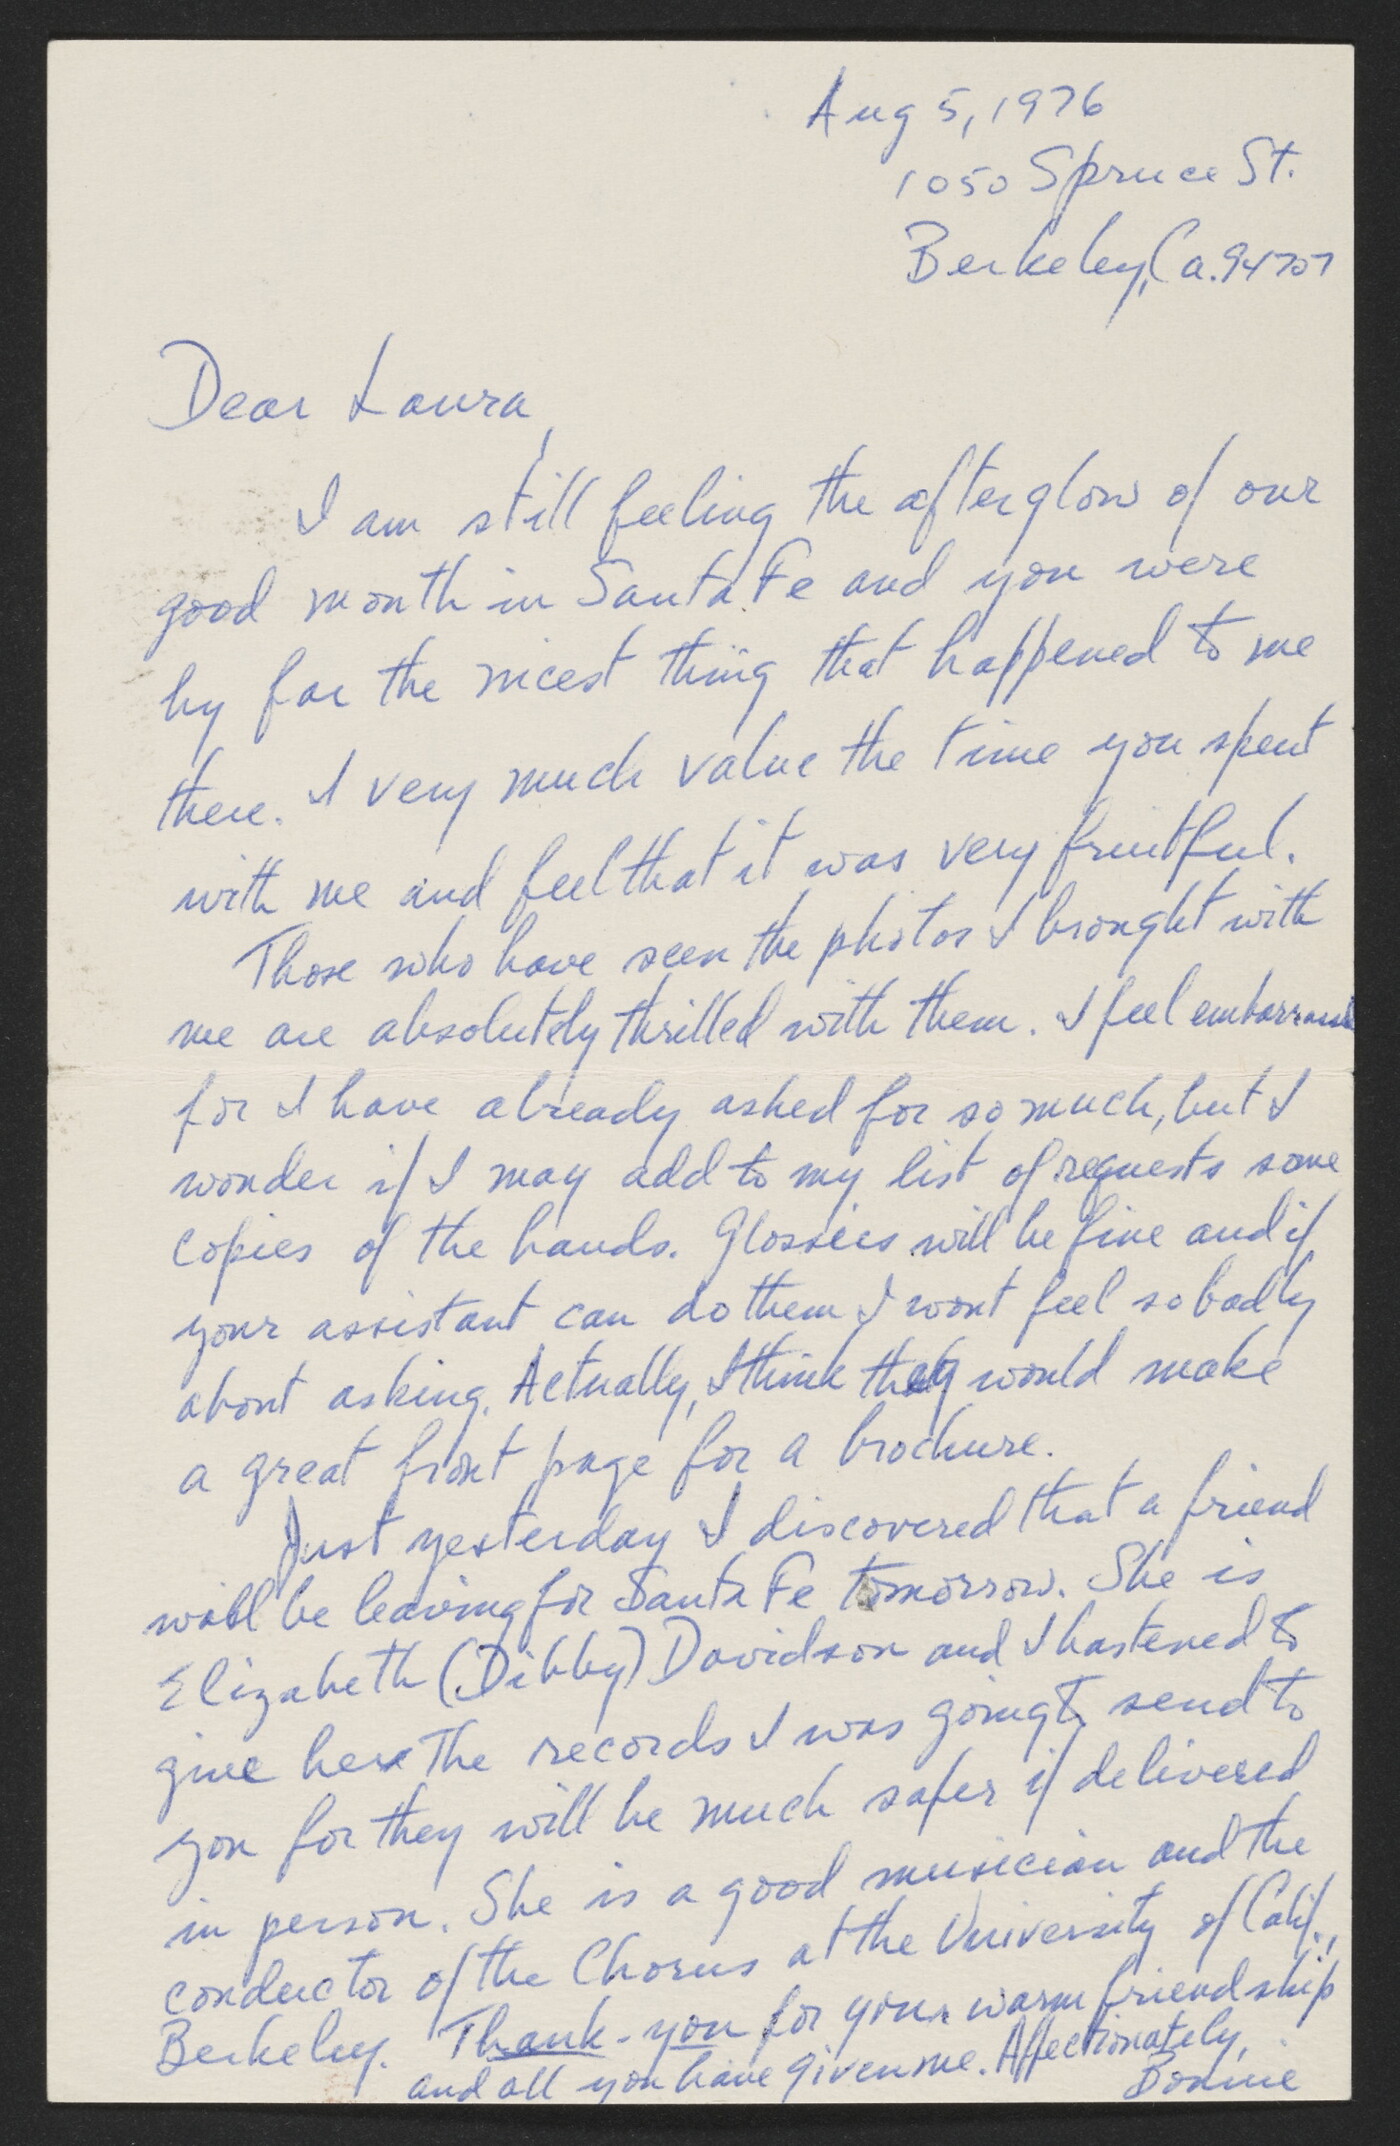 Aug 5, 1976
1050 Spruce St.
Berkeley, Ca. 94707
Dear Laura,
I am still feeling the afterglow of our
good month in Santa Fe and you were
by far the nicest thing that happened to me
there. I very much value the time you spent
with me and feel that it was very fruitful.
Those who have seen the photos I brought with
me are absolutely thrilled with them. I feel embarrassed
for I have already asked for so much, but I
wonder if I may add to my list of requests some
copies of the hands. Glossies will be fine and if
your assistant can do them I wont feel so badly
about asking. Actually, I think they would make
a great front page for a brochure.
Just yesterday I discovered that a friend
will be leaving for Santa Fe tomorrow. She is
Elizabeth (Dibby) Davidson and I hastened to
give her the records I was going to send to
you for they will be much safer if delivered
in person. She is a good musician and the
conductor of the Chorus at the University of Calif.,
Berkeley. Thank-you for your warm friendship
and all you have given me. Affectionately,
Bonnie